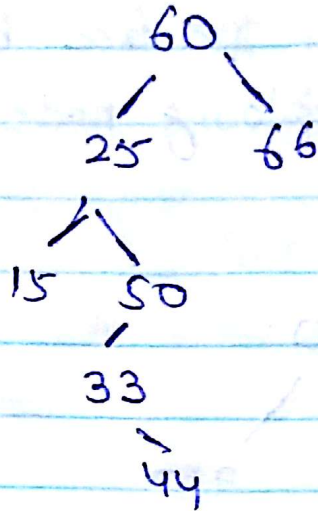 60
25 66
15 50
33
44